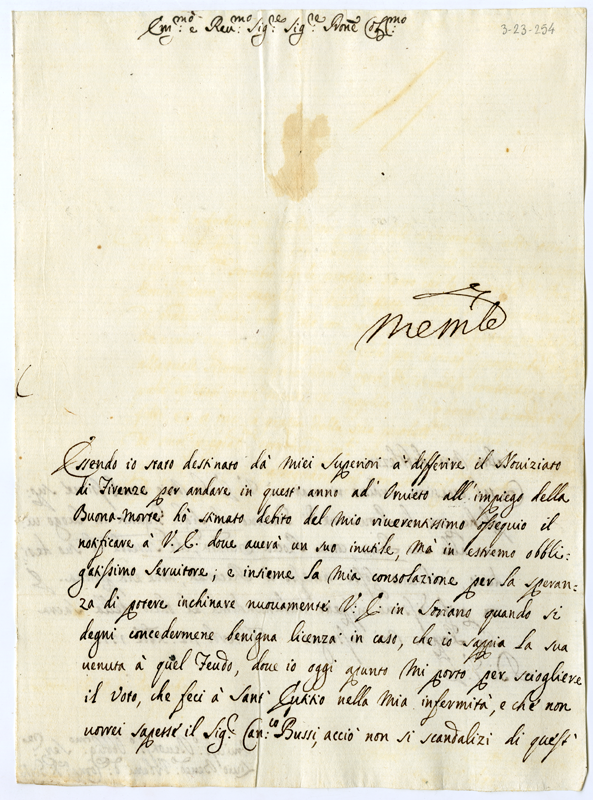 Em.mo e Rev.mo Sig.re Sig.re Prone Col.mo
3-23-254
Essendo io stato destinato dà miei Superiori à differire il Noviziato
di Firenze per andare in quest' anno ad' Orvieto all' impiego della
Buona-Morte; hò stimato debito del mio riverentissimo ossequio il
notificare à V. E. dove averà un suo inutile, mà in estremo obbli-
gatissimo servitore; e insieme la mia consolazione per la speran-
za di potere inchinare nuovamente V. E. in Soriano quando si
degni concedermene benigna licenza in caso, che io sappia la sua
venuta à quel Feudo, dove io oggi apunto mi porto per sciogliere
il Voto, che feci à Sant' Eutitio nella mia infermità, e che non
vorrei sapesse il Sig.r Can.co Bussi, acciò non si scandalizi di quest'